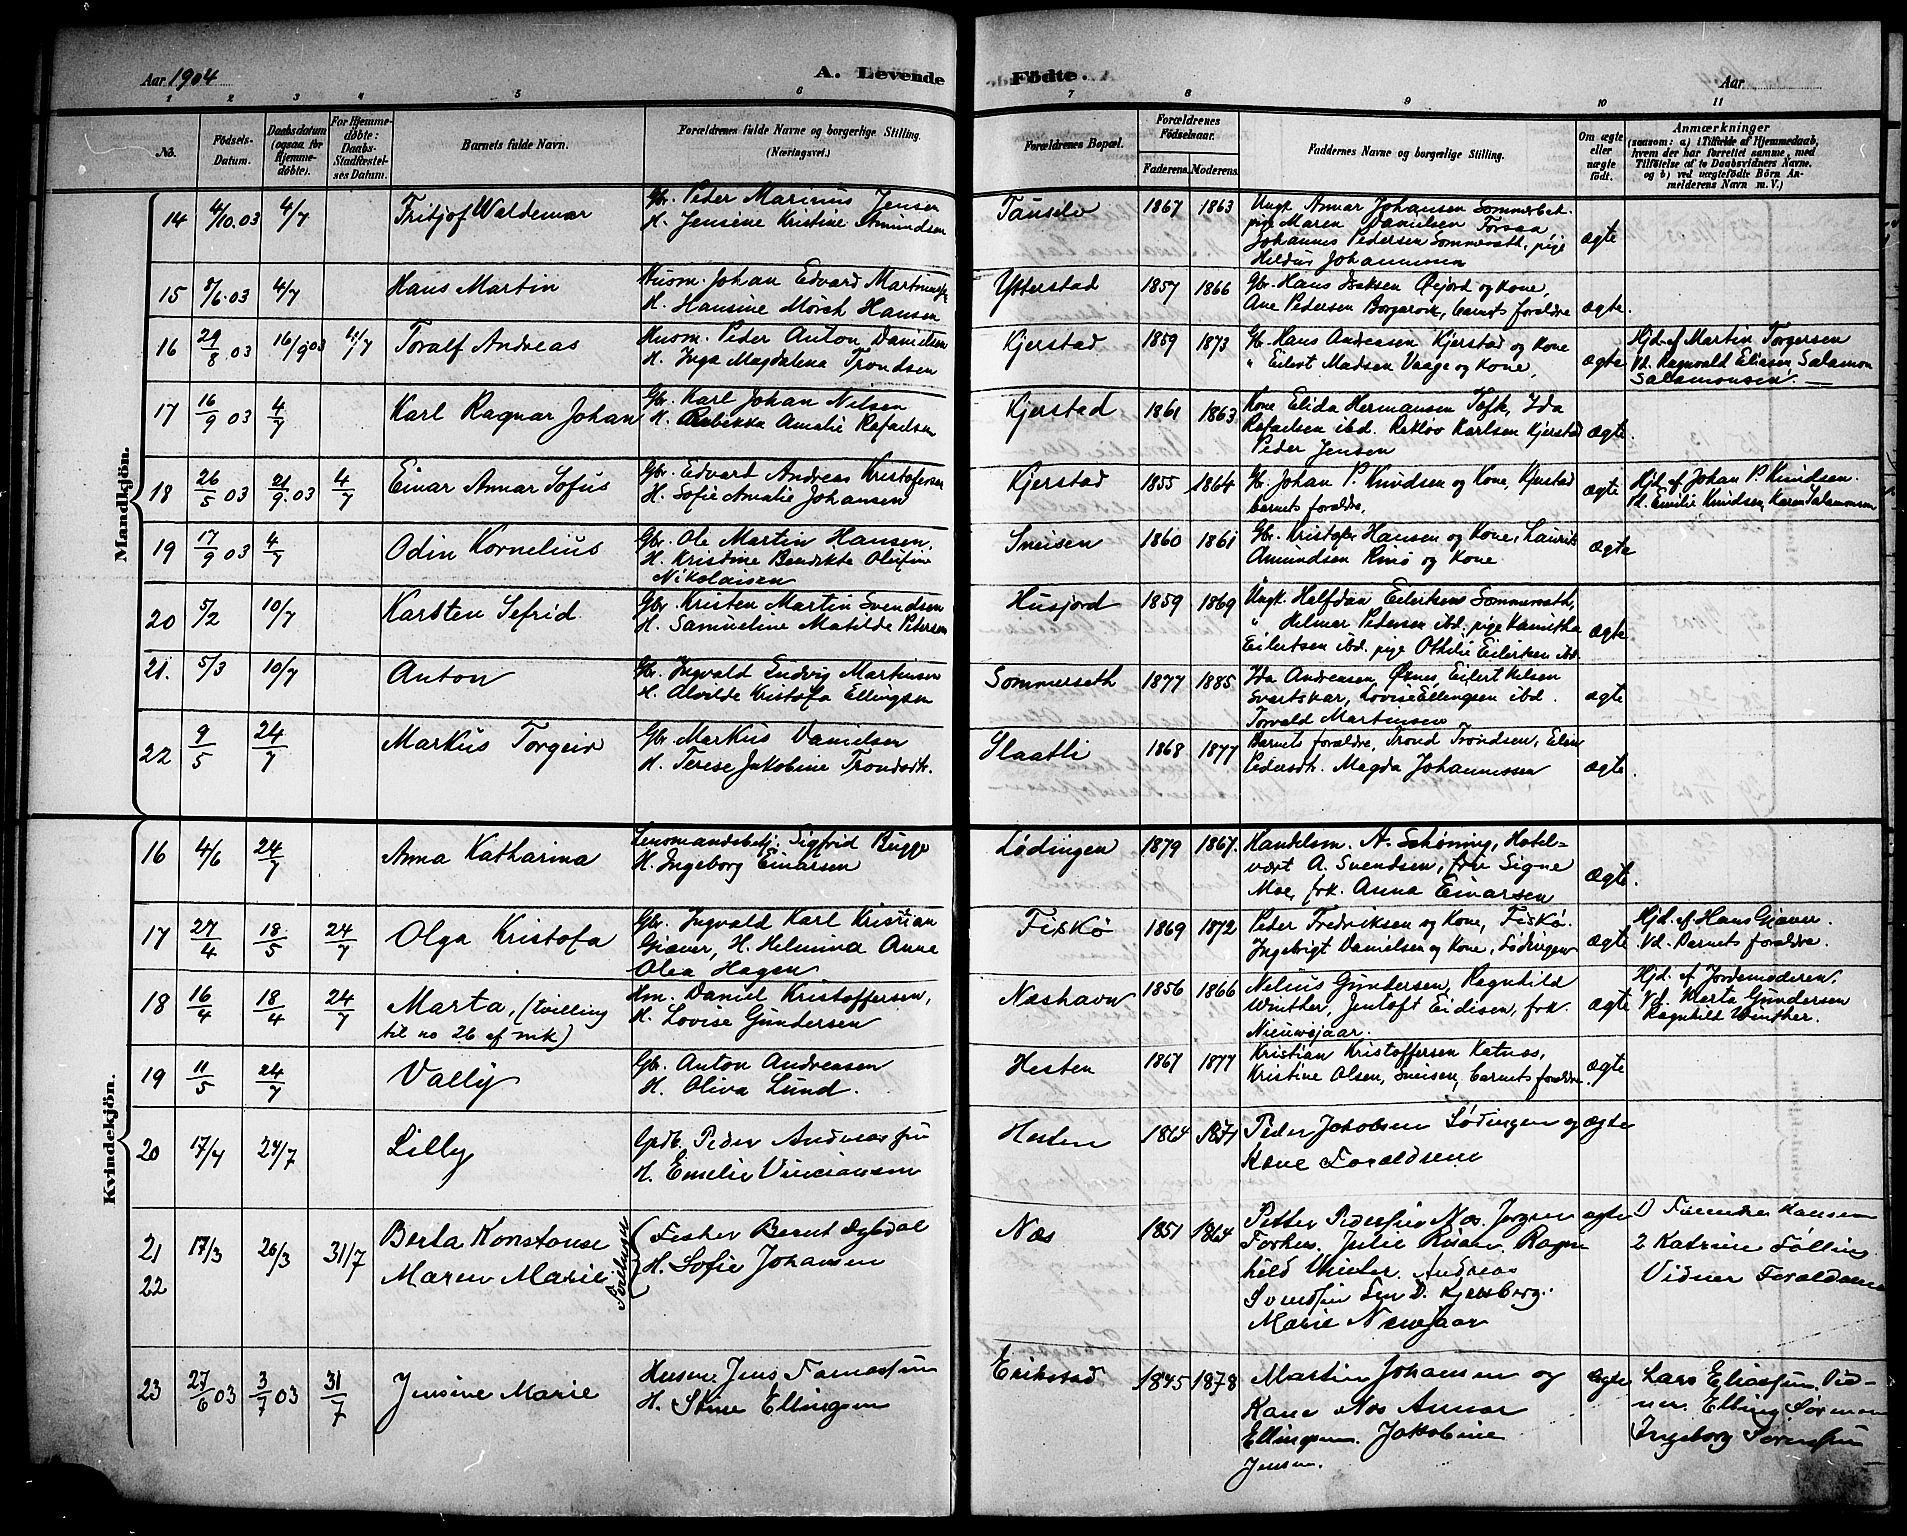 Aar 1904
A. Levende
Födte.
Aar
1 2 3 4 5 6 7 8 9 10 11
No.
Födsels-
Datum.
Daabsdatum
(ogsaa for
Hjemme-
døbte).
For Hjemme-
døbte:
Daabs-
Stadfæstel-
ses Datum.
Barnets fulde Navn.
Forældrenes fulde Navne og borgerlige Stilling.
(Næringsvei.)
Forældrenes Bopæl.
Forældrenes
Födselsaar.
Faderens. Moderens.
Faddernes Navne og borgerlige Stilling.
Om ægte
eller
uægte
födt.
Anmærkninger
(saasom: a) i Tilfælde af Hjemmedaab,
hvem der har forrettet samme, med
Tilföielse af to Daabsvidners Navne,
og b) ved uægtefödte Börn An-
melderens Navn m. V.)
Mandkjön.
14 4/10.03 4/7 Fritjof Waldemar
Gbr. Peder Marinus Jensen
H. Jensine Kristine Amundsen
1867 1863
Ungk. Annar Johansen Sommerset.
pige Maren Danielsen Forsaa
Johannes Pedersen Sommerseth, pige
Johannessen
ægte
15 /6.03 4/7 Hans Martin
Husm. Johan Edvard Martinussen
H. Hansine Mörch Hansen
Ytterstad 1857 1866
Gbr. Hans Isaksen Øijord og kone,
Ane Pedersen barnets foraldre
ægte.
16 29/8 03 16/9 03 4/7 Toralf Andreas
Husm. Peder Anton Danielsen
H. Inga Magdalena Trondsen
Kjerstad 1859 1873
Gb. Hans Andreasen Kjerstad og Kone
" Eilert Madsen Vaage og Kone,
ægte
Hjd. af Martin Torgersen
Vd. Ragnvald Eliasen, Salamon
Salamonsen.
17 16/9 03 4/7 Karl Ragnar Johan
Gbr. Karl Johan Nilsen
H. Rebekka Amalie Rafaelsen
Kjerstad 1861 1863
Kone Elida Hermansen Ida
Rafaelsen ibd. Karlsen Kjerstad
Peder Jensen
ægte.
18 26/5 03 21/9.03 4/7 Einar Annar Sofus
Gbr. Edvard Andreas Kristofersen
H. Sofie Amalie Johansen
Kjerstad 1855 1864
Gb. Johan P. Knudsen og Kone, Kjerstad
barnets foraldre.
ægte
Hjd. af Johan P. Knudsen.
Vd. Emilie Knudsen, Karen Salamonsen
19 17/9 03 4/7 Odin Kornelius
Gbr. Ole Martin Hansen.
H. Kristine Bendikte Olufine
Nikolaisen
Sneisen 1860 1861
Gbr. Kristofer Hansen og Kone, Laurits
Amundsen Rinö og Kone.
ægte
20 5/2 10/7 Karsten Sefrid.
Gbr. Kristen Martin Svendsen
H. Samueline Matilde Petersen
Husjord 1859 1869
Ungk. Halfdan Eilertsen Sommerseth,
" Helmer Pedersen ibd. pige
Eilertsen ibd. pige Othilie Eilertsen ibd.
ægte
21. 5/3 10/7 Anton
Gbr. Ingvald Ludvig Martinsen
H. Alvilde Kristofa Ellingsen
Sommerseth 1877 1885
Ida Andreasen, Øxnes, Eilert Nilsen
Svartskar, Lovise Ellingsen ibd.
Torvald Martinsen
ægte
22 9/5 24/7 Markus Torgeir
Gbr. Markus Danielsen
H. Terese Jakobine Trondsdtr.
Slaatli 1868 1877
Barnets foraldre, Trond Trondsen, Elen
Pedersdtr. Magda Johannessen
ægte.
Kvindekjön.
16 4/6 24/7 Anna Katharina
Lensmandsbetj. Sigfrid Bugge
H. Ingeborg Einarsen
Lødingen 1879 1867.
Handelsm. A. Schöning, Hotel-
vært A. Svendsen, fru Signe
Moe, frk. Anna Einarsen
ægte.
17 27/4 18/5 24/7 Olga Kristofa
Gbr. Ingvald Karl Kristian
Giæver, H. Helmina Anne
Olea Hagen
Fiskö 1869 1872
Peder Fredriksen og Kone, Fiskö.
Ingebrigt Danielsen og Kone, Lödingen
ægte
Hjd. af Hans Giæver.
Vd. Barnets foraldre.
18 16/4 18/4 24/7 Marta, (tvilling
til no 26 af mk)
Hm. Daniel Kristoffersen,
H. Lovise Gundersen
Næshavn 1856 1866
Nelius Gundersen, Ragnhild
Winther, Jentoft Eidisen, frk.
Nieuwejaar.
ægte
Hjd. af Jordemoderen,
Vd. Marta Gundersen
Ragnhild Winther.
19 11/5 24/7 Vally
Gb. Anton Andreasen
H. Oliva Lund.
Hesten 1867 1877
Kristian Kristoffersen Katnes,
Kristine Olsen, Sneisen, barnets foraldre.
ægte
20 17/4 24/7 Lilly
Gpdb. Peder Andreassen
H. Emelie
Hesten 1864 1871
Peder Jakobsen Lödingen og
Kone Foraldrene
ægte
21 17/3 26/3 31/7 Berla Konstanse
22 Maren Marie
Tvillinger
Fisker Bernt Dybdal
H. Sofie Johansen
Næs 1851 1864
Petter Pedersen Næs. Jørgen
Julie Ragn
hild Vinter. Andreas
Svendsen D. Kjensberg.
Marie Nieuwjaar
ægte
1) Hansen
2 Katrine Følling
Vidner Foraldrene
23 27/6 03 3/7 03 31/7 Jensine Marie
Husm. Jens Tomassen
H. Stine Ellingsen
Erikstad 1845 1878
Martin Johansen og
Kone Næs Annar
Ellingsen. Jakobine
Jensen.
ægte
Lars Eliassen. Vid-
ner. Elling Sörensen
Ingeborg Sörensen